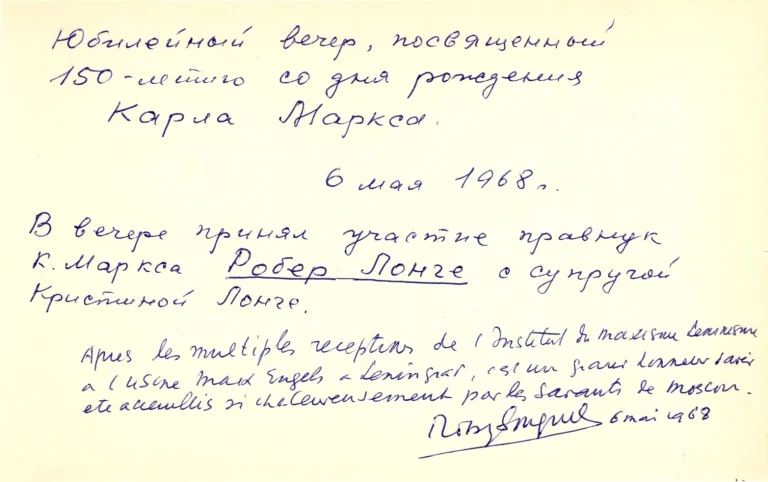 Юбилейный вечер, посвященный
150-летию со дня рождения
Карла Маркса.
6 мая 1968 г.
В вечере принял участие правнук
К. Маркса Робер Лонге с супругой
Кристиной Лонге.
Apres les multiples receptions de l'Institut du marxisme Leninisme
a l'usine Marx Engels a Leningrad, est un grand honneur d'avoir
ete accueillis si chaleureusement par les Savants de Moscou.
Robert Longuet 6 mai 1968